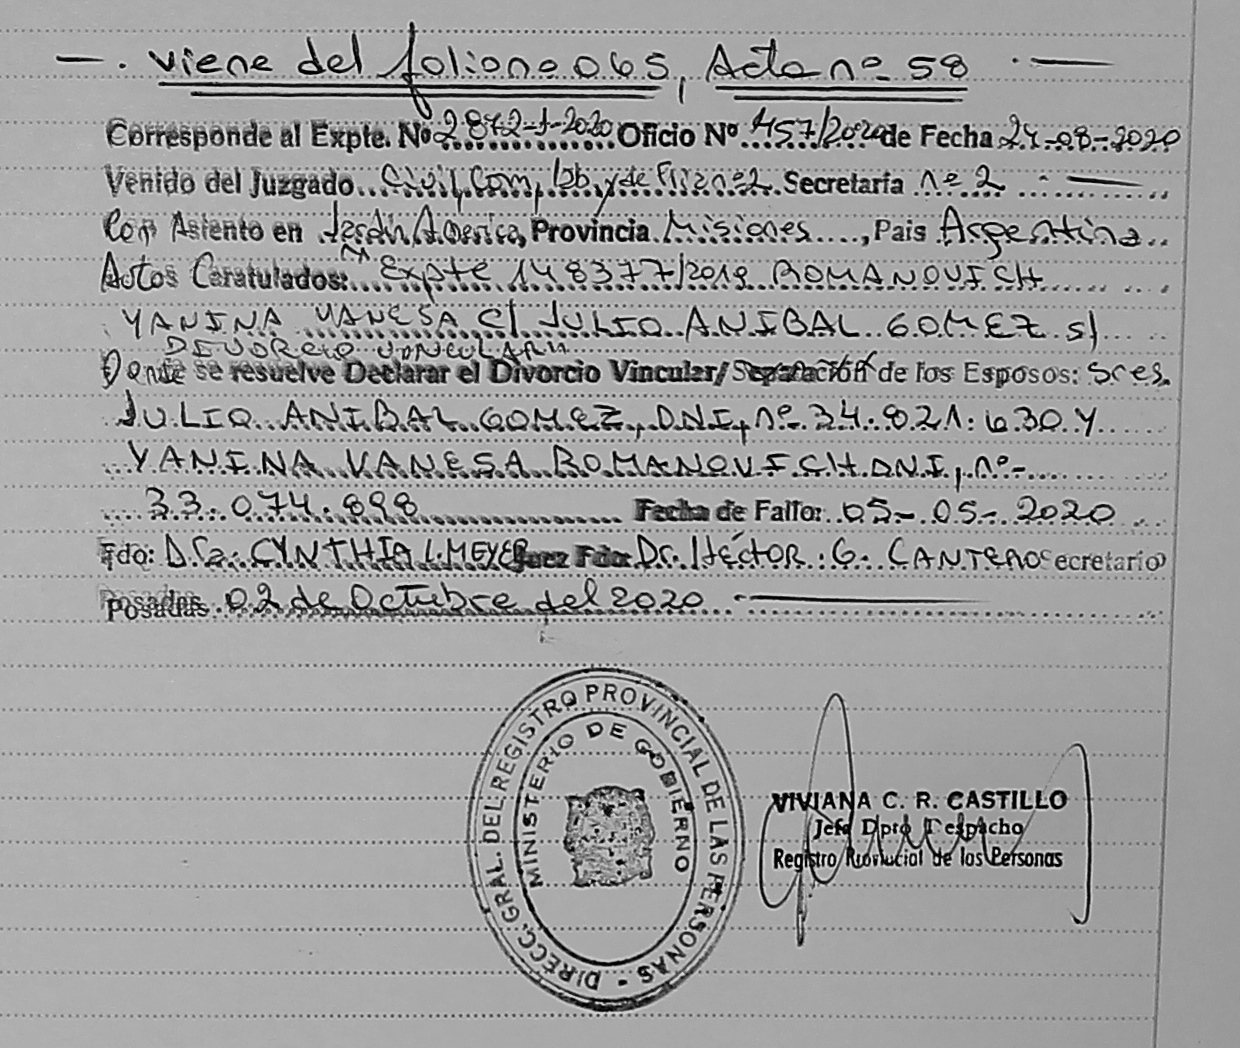 —. viene del folio nº 065, Acta nº 58 .—
Corresponde al Expte. Nº 2872-J-2020 Oficio Nº 457/2020 de Fecha 24-08-2020
Venido del Juzgado Civil, Com, Lab, y de Flia nº 2. Secretaría nº 2
Con Asiento en Jardín América, Provincia Misiones, País Argentina
Autos Caratulados: "Expte 148377/2019 ROMANOVICH
YANINA VANESA C/ JULIO ANIBAL GOMEZ S/
DIVORCIO VINCULAR"
Donde se resuelve Declarar el Divorcio Vincular/Separación de los Esposos: Sres.
JULIO ANIBAL GOMEZ, DNI, nº 34.821.630 Y
YANINA VANESA ROMANOVICH DNI, nº-
33.074.898 Fecha de Fallo: 05-05-2020
Fdo: Dra. CYNTHIA L. MEYER Juez Fdo Dr. Héctor G. CANTERO Secretario
Posadas 02 de Octubre del 2020
DIRECC. GRAL. DEL REGISTRO PROVINCIAL DE LAS PERSONAS -
MINISTERIO DE GOBIERNO
VIVIANA C. R. CASTILLO
Jefe Dpto Despacho
Registro Provincial de las Personas